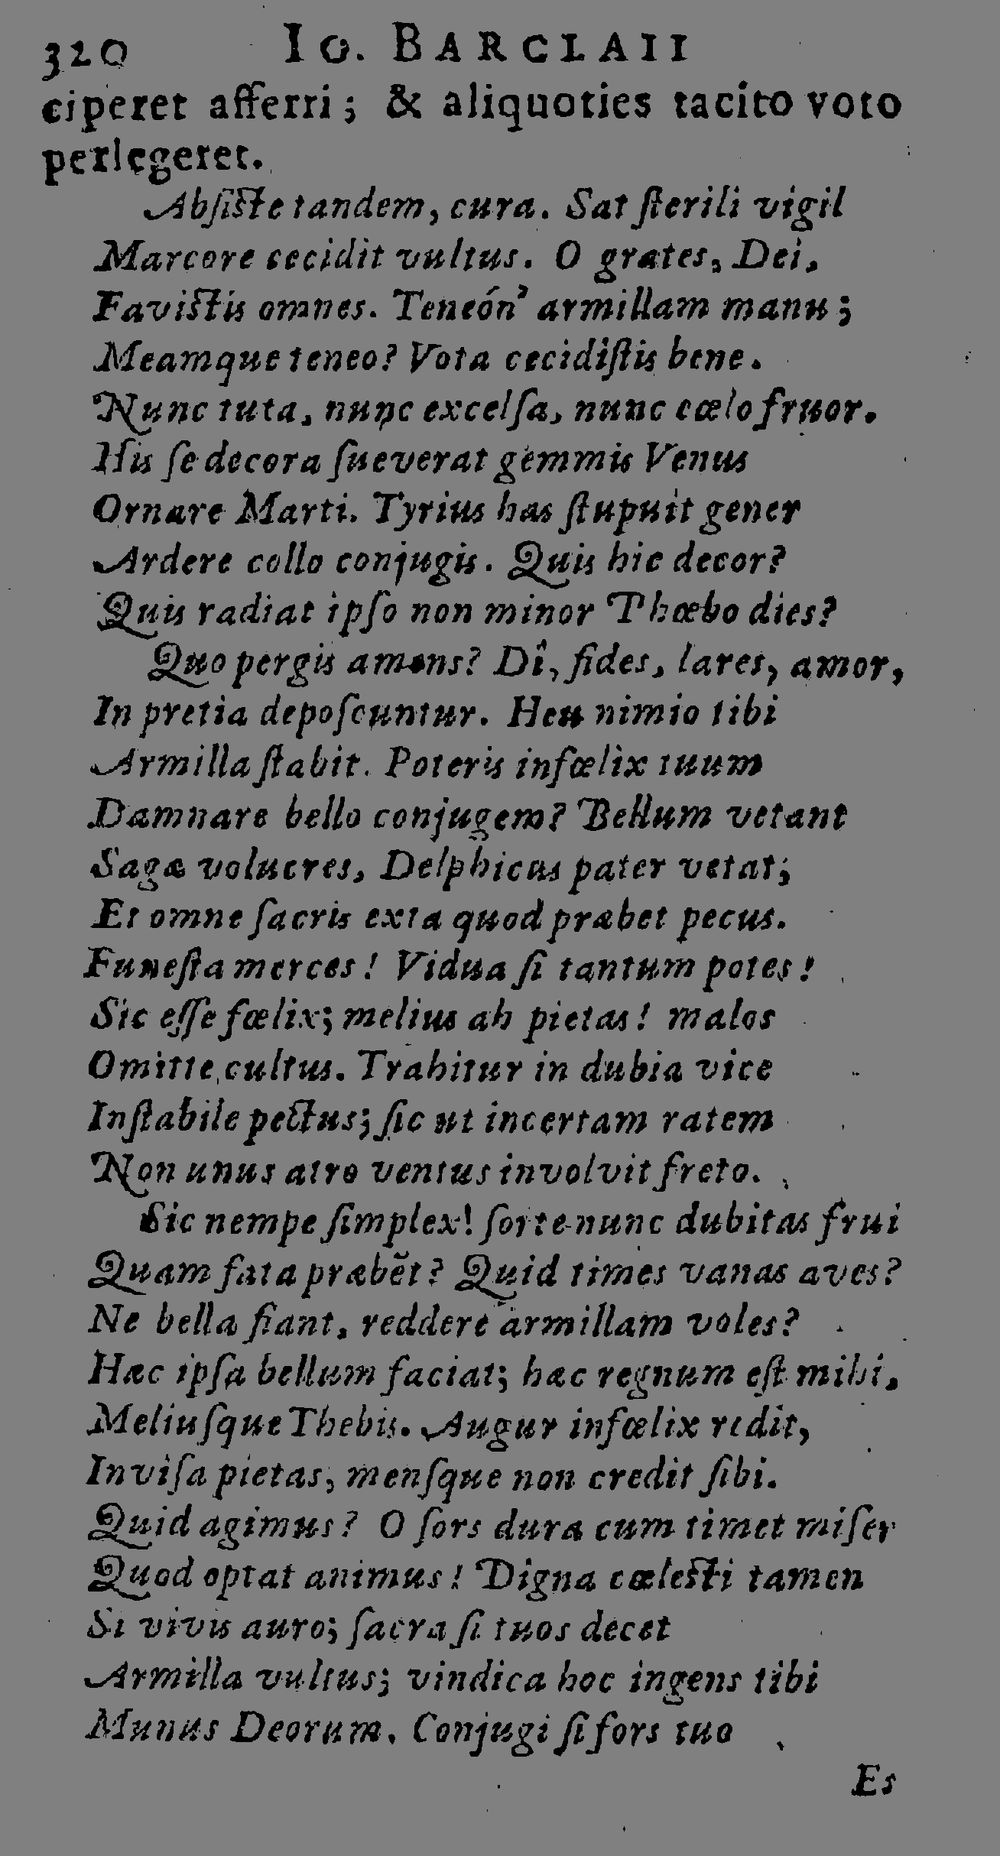 320 IO. BARCLAII
ciperet afferri; & aliquoties tacito voto
perlegeret.
Absiste tandem, cura. Sat sterili vigil
Marcore cecidit vultus. O grates, Dei,
Favistis omnes. Teneón' armillam manu;
Meamque teneo? Vota cecidistis bene.
Nunc tuta, nunc excelsa, nunc cœlo fruor.
His se decora sueverat gemmis Venus
Ornare Marti. Tyrius has stupuit gener
Ardere collo conjugis. Quis hic decor?
Quis radiat ipso non minor Phœbo dies?
Quo pergis amens? Dî, fides, lares, amor,
In pretia deposcuntur. Heu nimio tibi
Armilla stabit. Poteris infœlix tuum
Damnare bello conjugem? Bellum vetant
Sagæ volucres, Delphicus pater vetat;
Et omne sacris exta quod præbet pecus.
Funesta merces! Vidua si tantum potes!
Sic esse fœlix; melius ah pietas! malos
Omitte cultus. Trahitur in dubia vice
Instabile pectus; sic ut incertam ratem
Non unus atro ventus involvit freto.
Sic nempe simplex! sorte nunc dubitas frui
Quam fata præbẽt? Quid times vanas aves?
Ne bella fiant, reddere armillam voles?
Hæc ipsa bellum faciat; hæc regnum est mihi,
Meliusque Thebis. Augur infœlix redit,
Invisa pietas, mensque non credit sibi.
Quid agimus? O sors dura cum timet miser
Quod optat animus! Digna cœlesti tamen
Si vivis auro; sacra si tuos decet
Armilla vultus; vindica hoc ingens tibi
Munus Deorum. Conjugi si fors tuo
Es